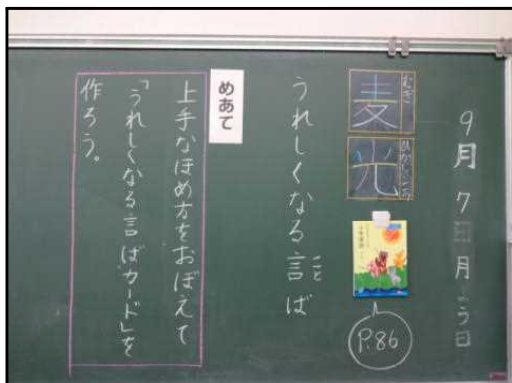 9月7日月よう日
麦
むぎ
光
P.86
うれしくなる言ば
こと
めあて
上手なほめ方をおぼえて
「うれしくなる言ばカード」を
作ろう。